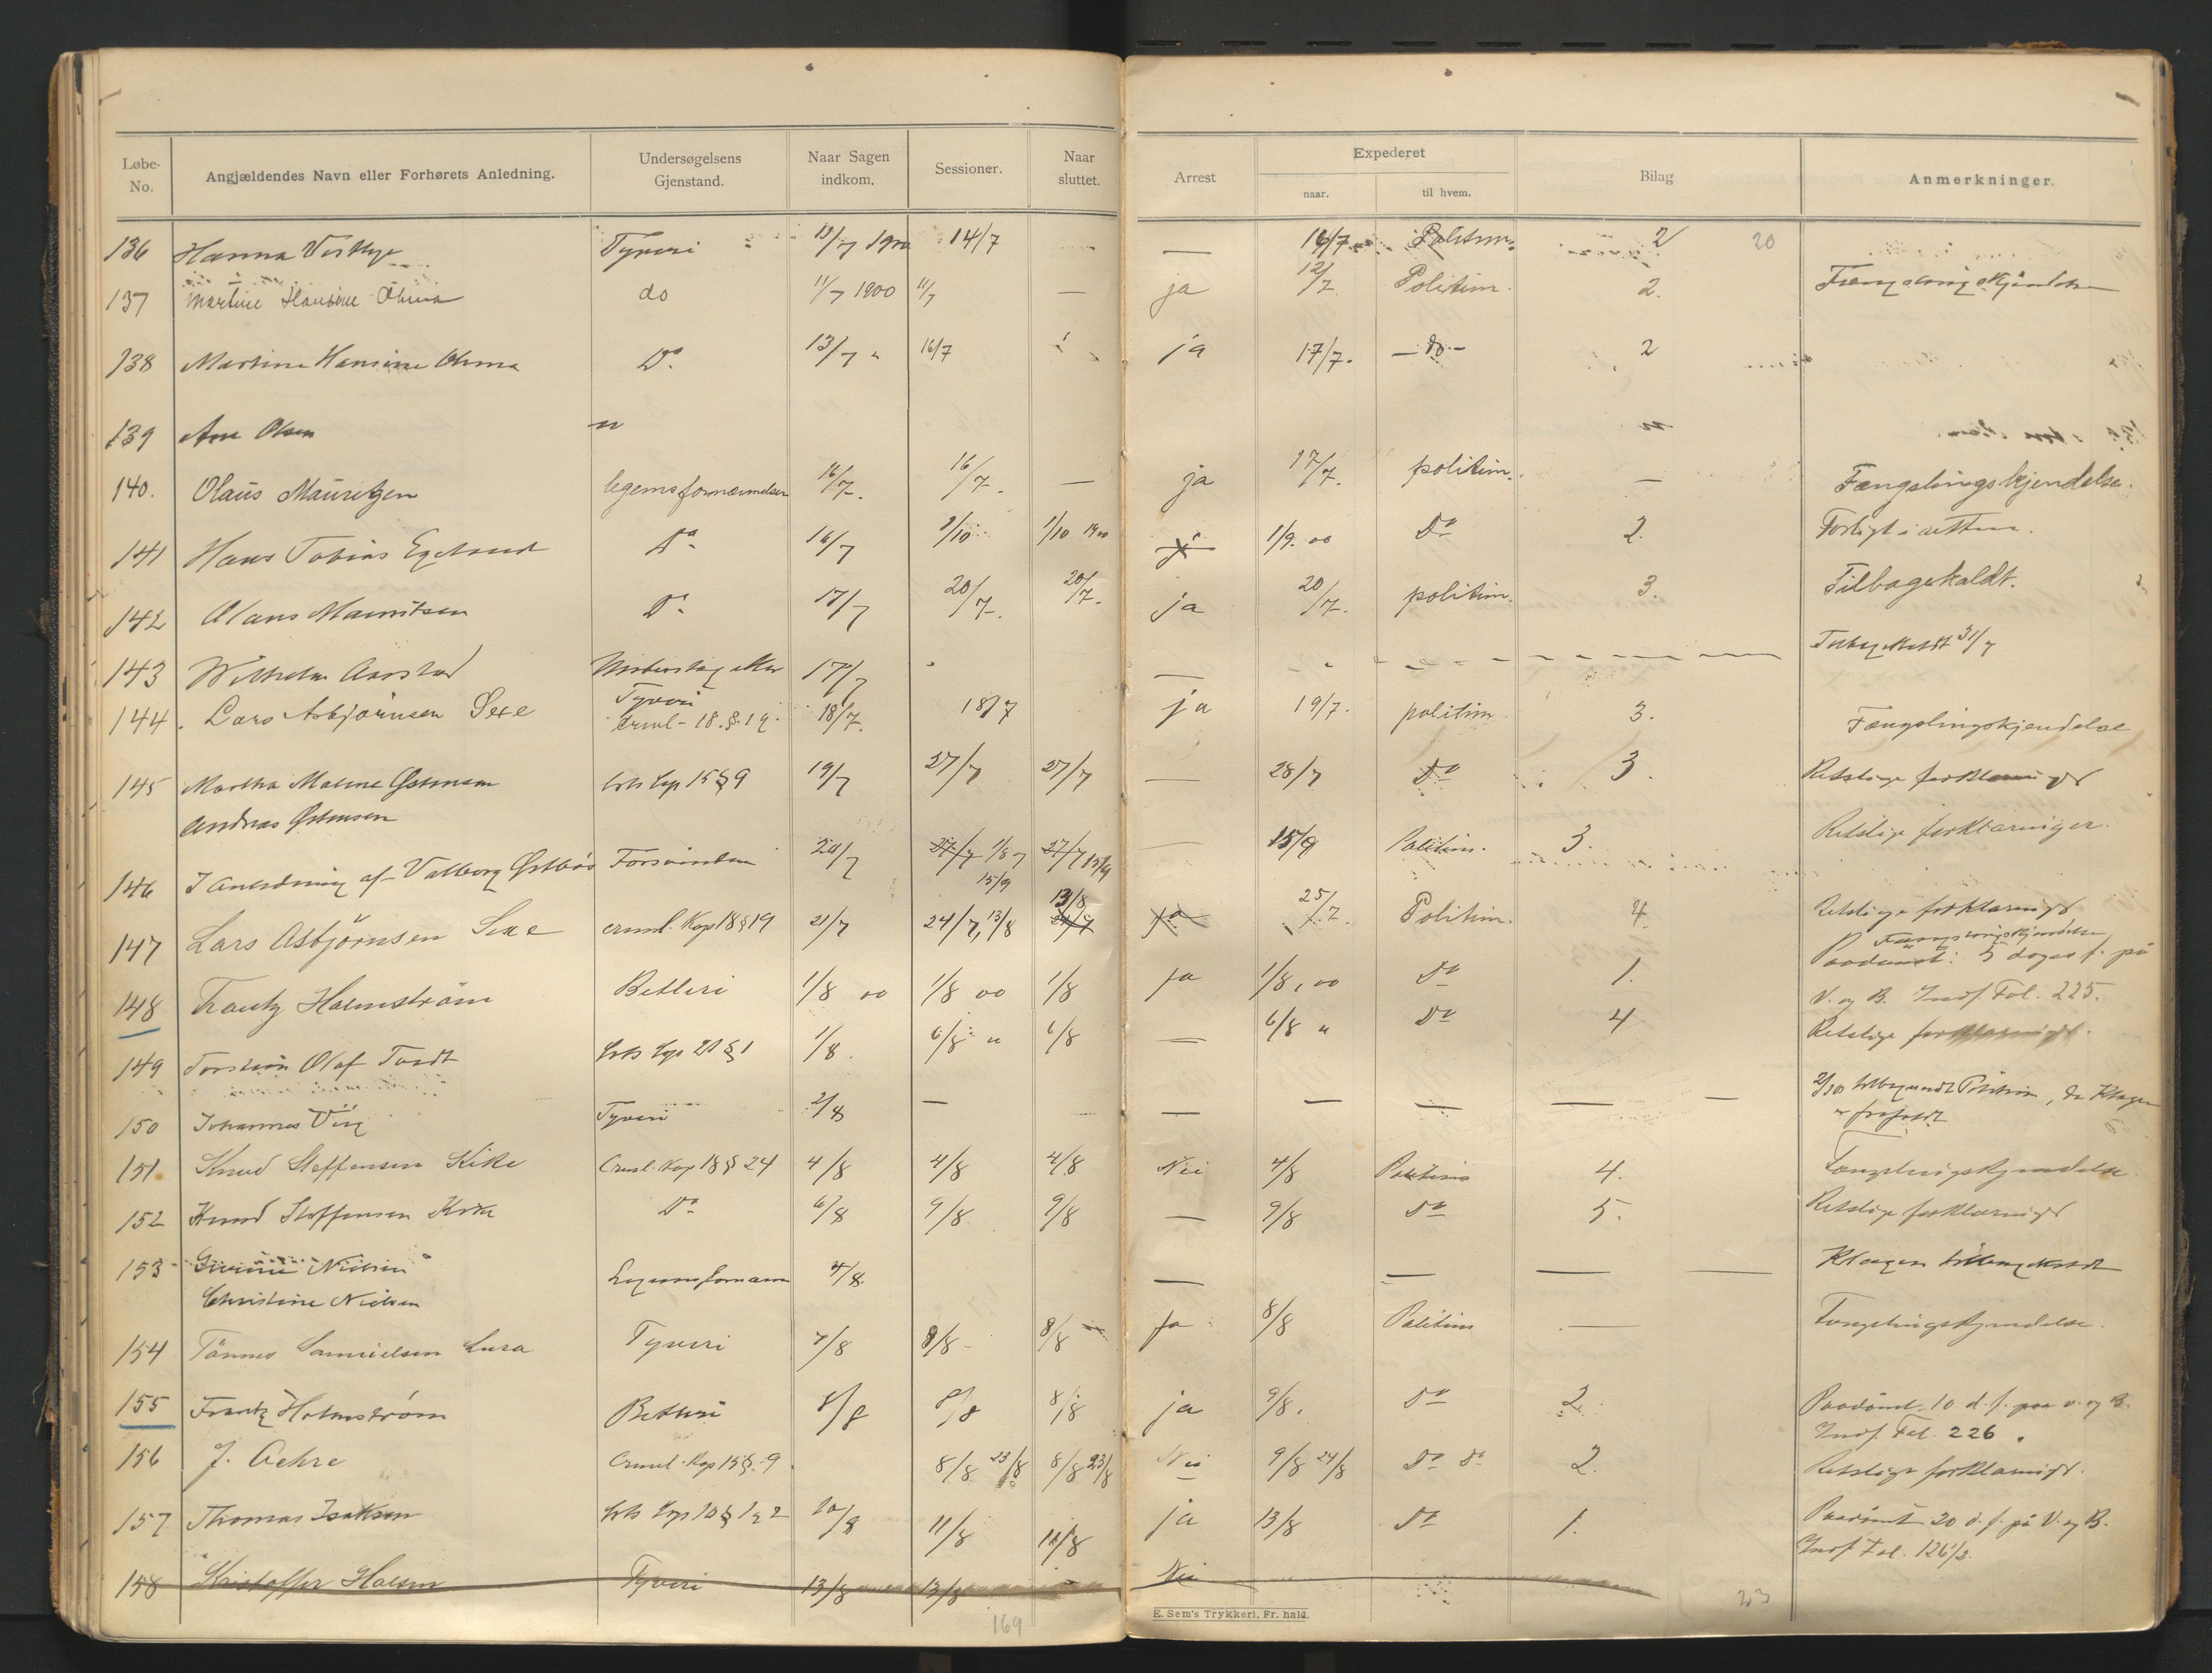 Løbe-No. Angjældendes Navn eller Forhørets Anledning. Undersøgelsens Gjenstand. Naar Sagen indkom. Sessioner. Naar sluttet. Arrest Expederet naar. til hvem. Bilag Anmerkninger.
136 Hanna Tyveri 13/7 1900 14/7 — 16/7 Politim. 2 20
137 Martine Hansine do 11/7 1900 11/7 — ja 12/7 Politim. 2. Fængslingskjendelse
138 Martine Hansine Do 13/7 " 16/7 ja 17/7. — do — 2
139 Ane Olsen "
140. Olaus Mauritzen legemsfornærmelser 16/7. 16/7. — ja 17/7. politim. — Fængslingskjendelse.
141 Hans Tobias Egeland Do 16/7 1/10 1/10 1900 1/9. 00 Do 2. Forligt i retten.
142 Olaus Mauritsen Do 17/7 20/7. 20/7. ja 20/7. politim. 3. Tilbagekaldt.
143 Wilhelm Aarstad 17/7 — Tilbagekaldt 31/7
Tyveri
144. Lars Asbjørnsen Sexe Criml- 18. §. 19. 18/7. 18/7 ja 19/7. politim 3. Fængslingskjendelse
145 Martha Malene Østensen Crls Kap 15 § 9 19/7 27/7 27/7 — 28/7 Do 3. Retslige forklaringer
Andreas Østensen
146 I Anledning af Valborg Østbøs Forsvinden 20/7 27/7 1/8 og 15/9 27/7 15/9 — 15/9 Politim. 3. Retslige forklaringer.
147 Lars Asbjörnsen Sexe criml. Kap 18 § 19 21/7 24/7, 13/8 13/8 24/7 ja 25/7. Politim. 4. Retslige forklaringer
Fængslingskjendelse
148 Frantz Holmström Betleri 1/8 00 1/8 00 1/8 ja 1/8. 00 Do 1. Paadömt: 5 dages f. på
V. og B. Indf. Fol. 225.
149 Torstein Olaf Tvedt Crls Kap 21 § 1 1/8. 6/8 " 6/8 — 6/8 " Do 4 Retslige forklaringer.
150 Johannes Tyveri 2/8 — — — — — — 2/10 Politim, da Klagen
er frafaldt
151. Knud Steffensen Kike Criml. Kap 18 § 24 4/8 4/8 4/8 Nei 4/8 Politim 4. Fængslingskjendelse
152 Knud Steffensen Do 6/8 9/8 9/8 — 9/8 Do 5. Retslige forklaringer
153 Nielsen 4/8. — — — — Klagen tilbagekaldt
Christine Nielsen
154 Tönnes Samuelsen Lura Tyveri 7/8 8/8 – 8/8 – ja 8/8 Politim — Fængslingskjendelse.
155 Frantz Holmström Betleri 8/8 8/8 8/8 ja 9/8. Do 2. Paadömt. 10 d. f. paa v. og B.
Indf. Fol. 226.
156 J. Aehre Criml. Kap 15 §. 9. 8/8 23/8 8/8 23/8 Nei 9/8 24/8 Do Do 2. Retslige forklaringer.
157 Thomas Isaksen Crls Kap 10 § 1, 2 10/8 11/8 11/8 ja 13/8 Do 1. Paadömt 20 d. f. på V. og B.
Indf. Fol. 126/2
158 Kristoffer Holsen Tyveri 13/8 13/8 Nei
E. Sem's Trykkeri, Fr. hald.
169
23